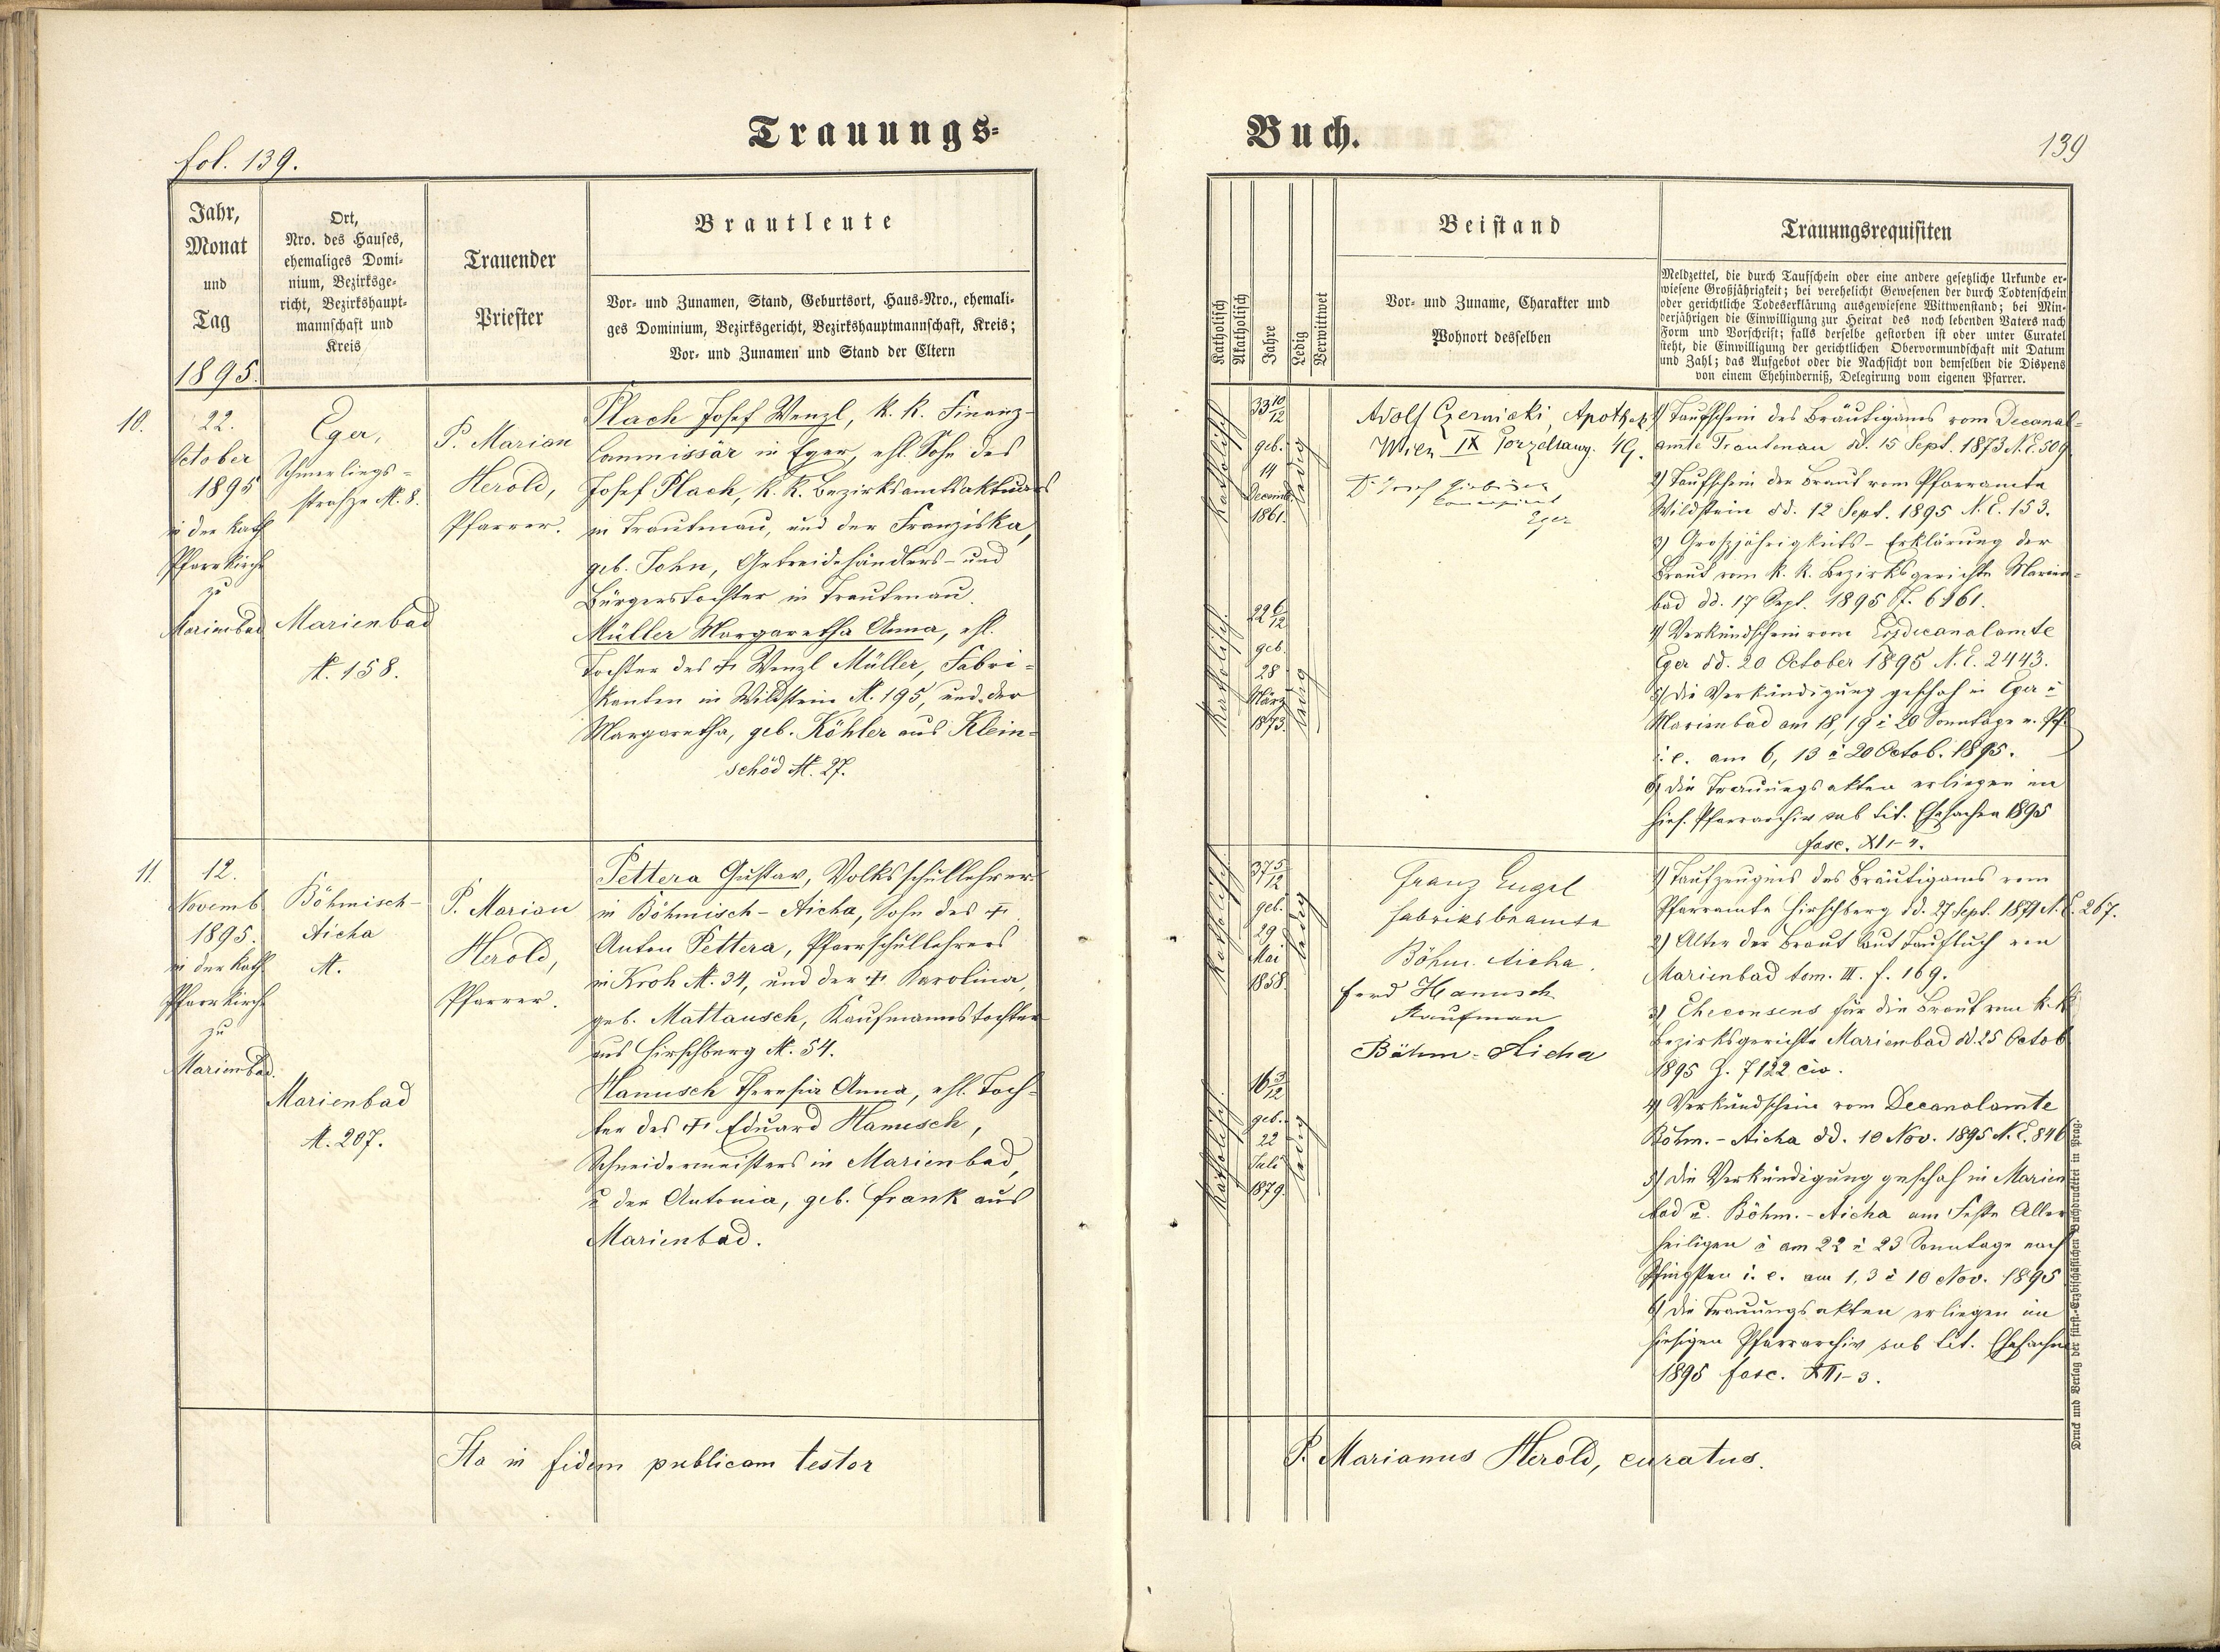 fol. 139.
Trauungs-
Jahr,
Monat
und
Tag
1895.
Ort,
Nro. des Hauses,
ehemaliges Domi-
nium, Bezirksge-
richt, Bezirkshaupt-
mannschaft und
Kreis
Trauender
Priester
Brautleute
Vor- und Zunamen, Stand, Geburtsort, Haus-Nro., ehemali-
ges Dominium, Bezirksgericht, Bezirkshauptmannschaft, Kreis;
Vor- und Zunamen und Stand der Eltern
10.
22.
October
1895
in der kath
Pfarrkirche
zu
Marienbad
Eger,
Schmerlings-
strasse N. 8.
Marienbad
N. 158.
P. Marian
Herold,
Pfarrer.
Plach Josef Wenzl, k. k. Finanz-
Commissär in Eger, ehl. Sohn des
Josef Plach, k. k. Bezirksamtsaktuars
in Trautenau, und der Franziska,
geb. John, Getreidehändlers- und
Bürgerstochter in Trautenau.
Müller Margaretha Anna, ehl.
Tochter des † Wenzl Müller, Fabri-
kanten in Wildstein N. 195, und der
Margaretha, geb. Köhler aus Klein-
schöd N. 27.
11.
12.
Novemb
1895.
in der kath
Pfarrkirche
zu
Marienbad.
Böhmisch-
Aicha
N.
Marienbad
N. 207.
P. Marian
Herold,
Pfarrer.
Pettera Gustav, Volksschullehrer
in Böhmisch-Aicha, Sohn des †
Anton Pettera, Pfarrschullehrers
in Kroh N. 34, und der † Karolina,
geb. Mattausch, Kaufmannstochter
aus Hirschberg N. 54.
Hanusch Theresia Anna, ehl. Toch-
ter des † Eduard Hanusch,
Schneidermeisters in Marienbad,
u der Antonia, geb. Frank aus
Marienbad.
Ita in fidem publicam testor
Buch.
139
Katholisch
Akatholisch
Jahre
Ledig
Verwittwet
Beistand
Vor- und Zuname, Charakter und
Wohnort desselben
Trauungsrequisiten
Meldzettel, die durch Taufschein oder eine andere gesetzliche Urkunde er-
wiesene Großjährigkeit; bei verehelicht Gewesenen der durch Todtenschein
oder gerichtliche Todeserklärung ausgewiesene Wittwenstand; bei Min-
derjährigen die Einwilligung zur Heirat des noch lebenden Vaters nach
Form und Vorschrift; falls derselbe gestorben ist oder unter Curatel
steht, die Einwilligung der gerichtlichen Obervormundschaft mit Datum
und Zahl; das Aufgebot oder die Nachsicht von demselben die Dispens
von einem Ehehinderniß, Delegirung vom eigenen Pfarrer.
katholisch
33 10/12
geb.
14
Decemb.
1861.
ledig
Adolf Czernicki, Apothek.
Wien IX Porzellang. 49.
Dr Josef
Concipient
Eger
1) Taufschein des Bräutigams vom Decanal-
amte Trautenau dd. 15 Sept. 1873 N.E. 509
2) Taufschein der Braut vom Pfarramte
Wildstein dd. 12 Sept. 1895 N.E. 153.
3) Grossjährigkeits-Erklärung der
Braut vom k. k. Bezirksgerichte Marien-
bad dd. 17 Sept. 1895 Z. 6161.
4) Verkündschein vom Erzdecanalamte
Eger dd. 20 October 1895 N.E. 2443.
5) Die Verkündigung geschah in Eger u
Marienbad am 18, 19 u 20 Sonntage n. Pf.
i. e. am 6, 13 u 20 Octob. 1895.
6) Die Trauungsakten erliegen im
hies. Pfarrarchiv sub tit. Ehesachen 1895
fasc. XI-4.
katholisch
22 6/12
geb.
28
März
1873.
ledig
katholisch
37 5/12
geb.
29
Mai
1858.
ledig
Franz Engel
Fabriksbeamte
Böhm. Aicha.
Ferd Hanusch
Kaufman
Böhm-Aicha
1) Taufzeugnis des Bräutigams vom
Pfarramte Hirschberg dd. 27 Sept. 1871 N.E. 267.
2) Alter der Braut laut Taufbuch von
Marienbad tom. III. f. 169.
3) Eheconsens für die Braut vom k. k.
Bezirksgerichte Marienbad dd. 25 Octob
1895 Z. 7122 civ.
4) Verkündschein vom Decanalamte
Böhm.-Aicha dd. 10 Nov. 1895 N.E. 846
5) Die Verkündigung geschah in Marien
bad u. Böhm.-Aicha am Feste Aller
heiligen u am 22 u 23 Sonntage nach
Pfingsten i. e. am 1, 3 u 10 Nov. 1895
6) Die Trauungsakten erliegen im
hiesigen Pfarrarchiv sub tit. Ehesachen
1895 fasc. XII-3.
katholisch
16 3/12
geb.
22
Juli
1879.
ledig
P. Marianus Herold, curatus.
Druck und Verlag der fürst-Erzbischöflichen Buchdruckerei in Prag.